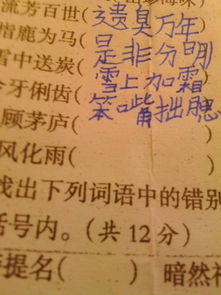 流芳百世(遗臭万年
指鹿为马(是非分明
雪中送炭(雪上加霜
伶牙俐齿(笨嘴拙腮
顾茅庐(
风化雨(
找出下列词语中的错别
括号内。(共12分)
提名( ) 暗然